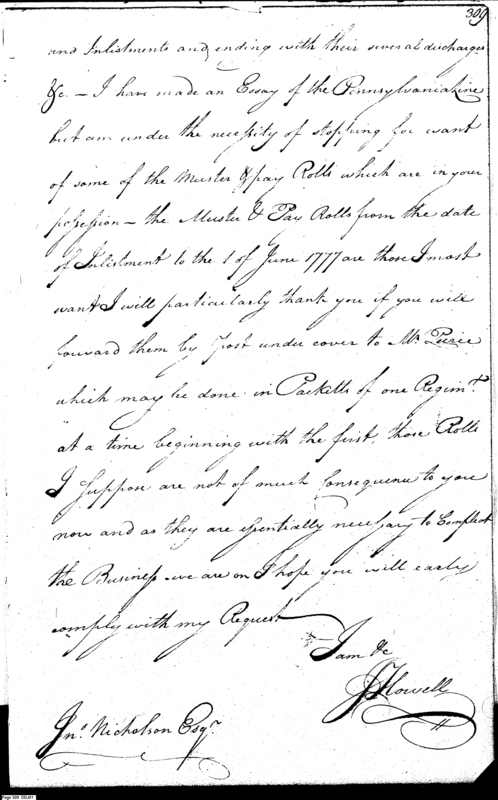 309
and Inlistments and ending with their several discharges
&c. – I have made an Essay of the Pennsylvania Line
but am under the necessity of stopping for want
of some of the Muster & pay Rolls which are in your
possession – the Muster & Pay Rolls from the date
of Inlistment to the 1 of June 1777 are those I most
want I will particularly thank you if you will
forward them by Post under cover to Mr Pierce
which may be done in Packetts of one Regimt.
at a time beginning with the first, those Rolls
I suppose are not of much Consequence to you
now and as they are essentially necessary to Compleat
the Business we are on I hope you will early
comply with my Request
I am &c
J Howell
Jno. Nicholson Esqr.
Page 309